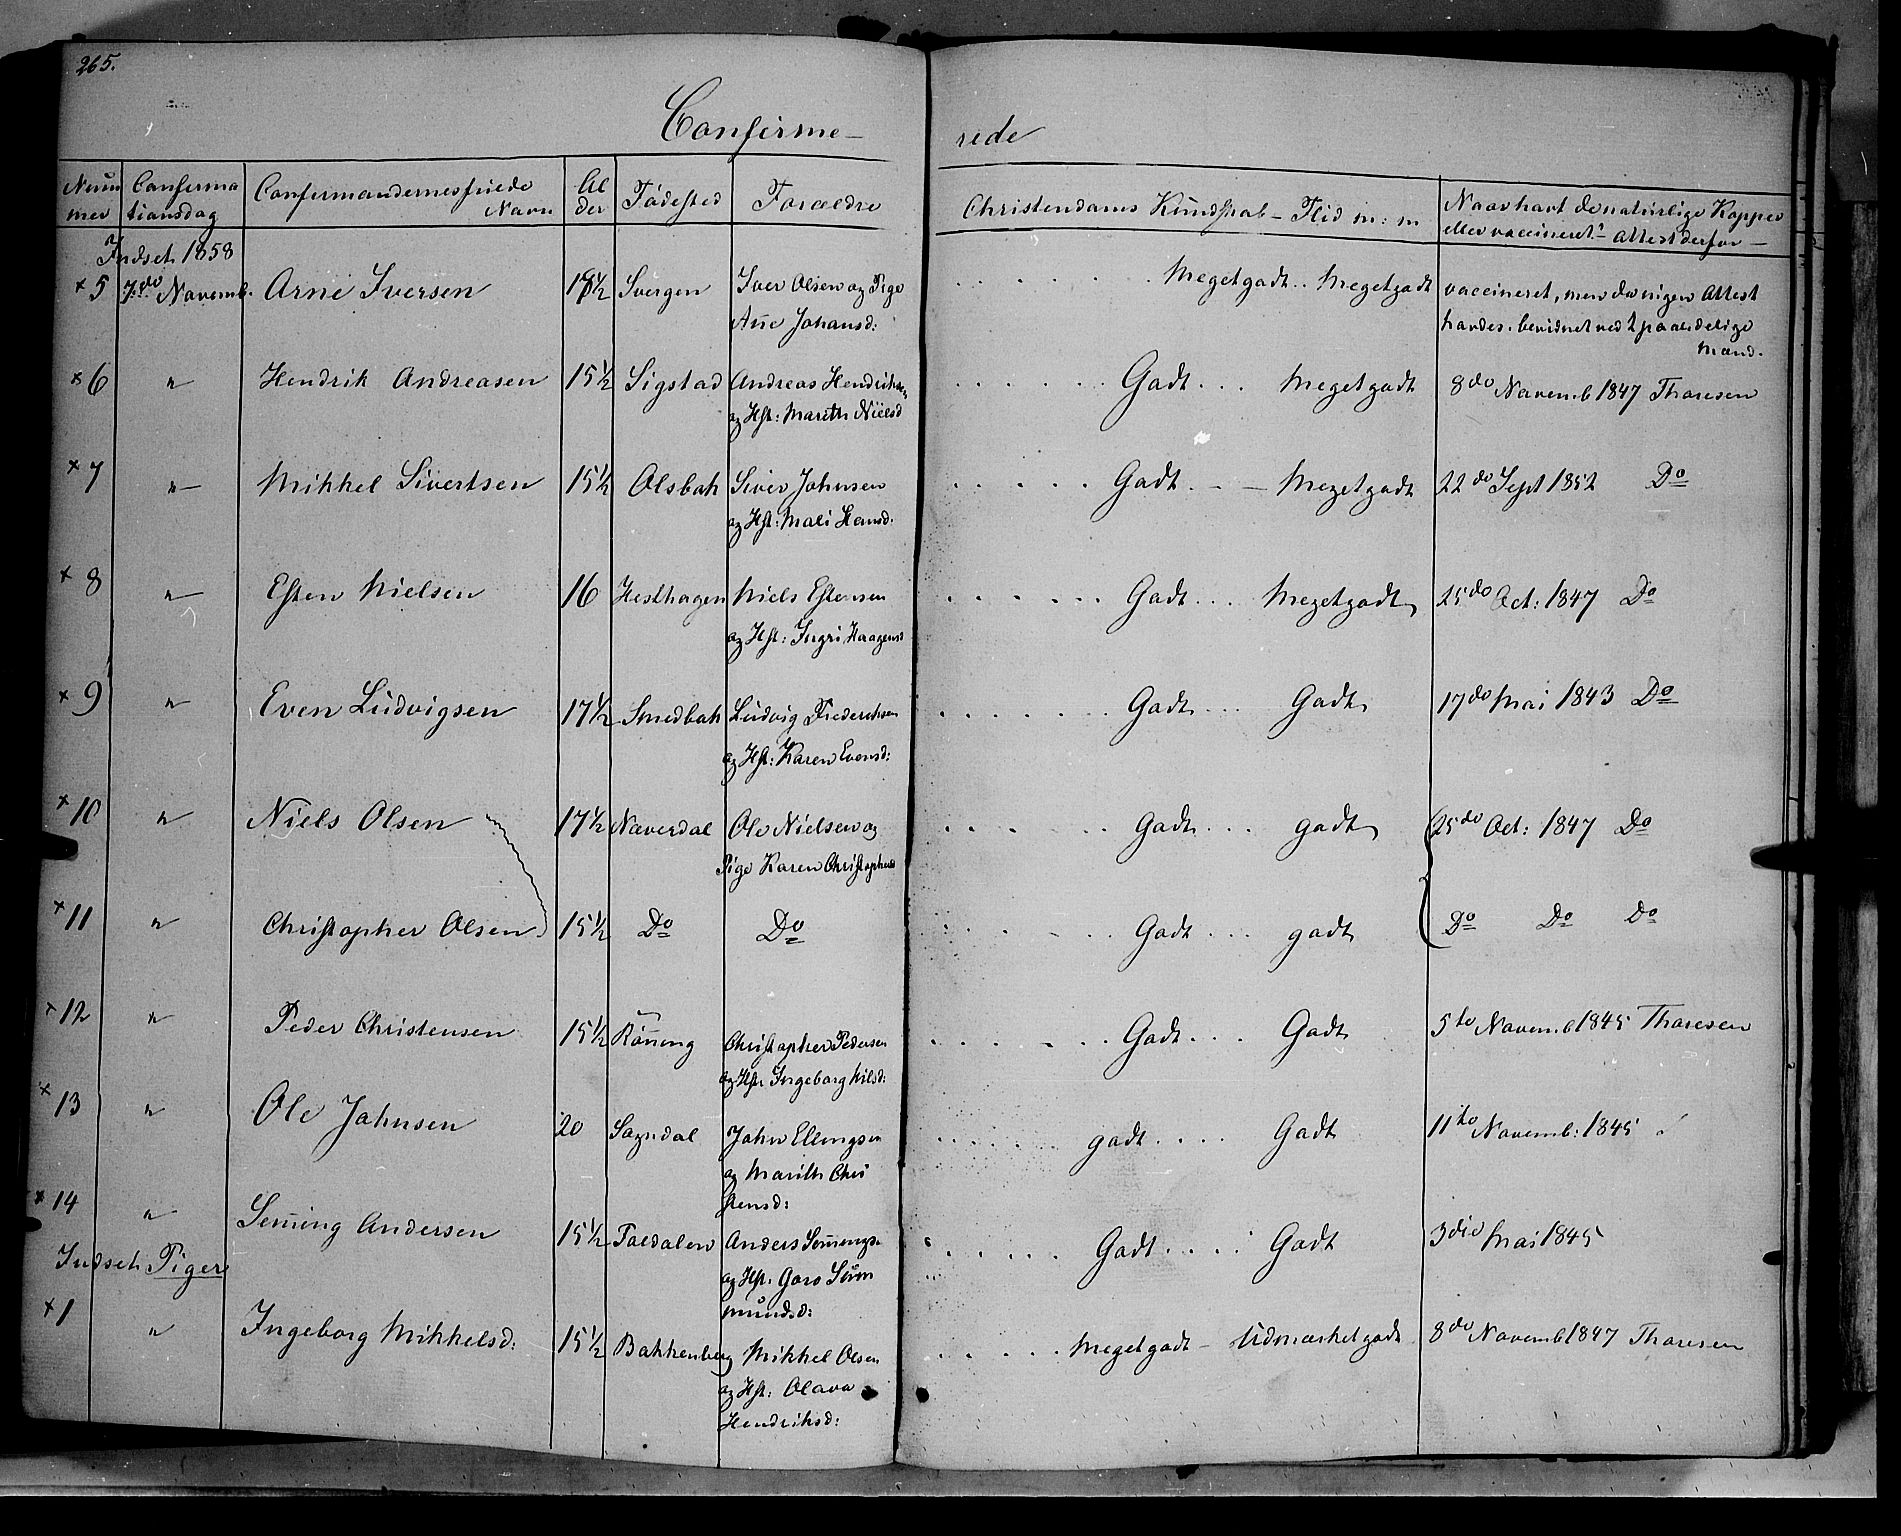 265.
Confirme-
rede
Num
mer
Confirma
tionsdag
Confirmandernes fulde
Navn
Al
der
Fødested
Forældre
Christendoms Kundskab – Flid m: m
Naar havt de naturlige Kopper
eller vaccineret? Attest derfor –
Indset 1858
×5 7de Novemb. Arne Iversen Svergen Iver Olsen og Pige
Ane Johansd:
Megetgodt .. Megetgodt
vaccineret, men
Attest
haves. bevidnet ved 2 paalidelige
Mænd.
×6 " Hendrik Andreasen 15½ Sigstad Andreas Hendriksen
og Hst: Marith Nielsd
Godt ... Megetgodt 8de Novemb 1847 Thoresen
×7 " Mikkel Sivertsen 15½ Olsbak Siver Johnsen
og Hst: Mali Hansd:
Godt - – Megetgodt 22de Sept 1852 Do
×8 " Esten Nielsen 16 Hesthagen Niels Estensen
og Hst: Ingri Haagensd
Godt ... Megetgodt 25de Oct: 1847 Do
×9 " Even Ludvigsen 17½ Smedbak Ludvig Frederiksen
og Hst: Karen Evensd:
Godt ... Godt 17de Mai 1843 Do
×10 " Niels Olsen 17½ Næverdal Ole Nielsen og
Pige Karen Christophersd
Godt ... godt 25de Oct: 1847 Do
×11 " Christopher Olsen 15½ Do Do
Godt ... godt Do Do Do
×12 " Peder Christensen 15½ Rönning Christopher Pedersen
og Hst Ingeborg Nilsd:
Godt ... Godt 5te Novemb 1845 Thoresen
×13 " Ole Johnsen 20 Sagndal John Ellingsen
og Marith Chri
stensd:
godt .... Godt 11te Novemb: 1845
×14 " Seming Andersen 15½ Foedalen Anders Semings.
og Hst. Goro Sim
mundsd:
Godt .... Godt 3die Mai 1845
Indset Piger
×1 " Ingeborg Mikkelsd: 15½ Bakkenberg Mikkel Olsen
og Hst: Olava
Hendriksd:
Megetgodt – Udmærketgodt 8de Novemb 1847 Thoresen